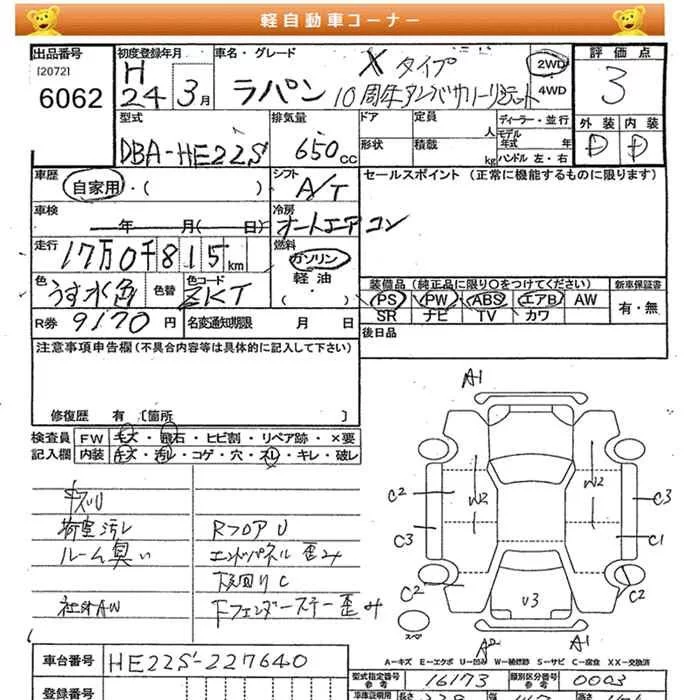 軽自動車コーナー
出品番号
[2072]
6062
初度登録年月
H
24 3月
車名・グレード
ラパン
Xタイプ
10周年アニバーサリーリミテット
2WD
4WD
評価点
3
外装 内装
D D
型式
DBA-HE22S
排気量
650cc
ドア
形状
定員
人
積載
kg
ディーラー・並行
モデル年式 年
ハンドル 左・右
車歴
自家用・( )
シフト
A/T
セールスポイント (正常に機能するものに限ります)
車検
年 月( 日)
冷房
オートエアコン
走行
17万0千815km
燃料
ガソリン
軽油
・( )
色
うす水色
色替
色コード
ZKT
装備品(純正品に限り○をつけてください)
PS PW ABS エアB AW
SR ナビ TV カワ
新車保証書
有・無
R券 9170円
名変通知期限 月 日
後日品
注意事項申告欄(不具合内容等は具体的に記入して下さい)
修復歴 有 〔箇所 〕
検査員記入欄
FW キズ・飛石・ヒビ割・リペア跡・×要
内装 キズ・汚レ・コゲ・穴・スレ・キレ・破レ
キズU
荷室汚レ
ルーム臭い
社外AW
RフロアU
エンドパネル歪み
下回りC
Fフェンダーステー歪み
A1
C2
W2
W2
C3
C3
C1
C2
C2
V3
スペア
A2
A1
A-キズ E-エクボ U-凹み W-補修跡 S-サビ C-腐食 XX-交換済
車台番号
HE22S-227640
登録番号
型式指定番号
参考
16173
類別区分番号
参考
0003
車庫証明用
長さ
高さ